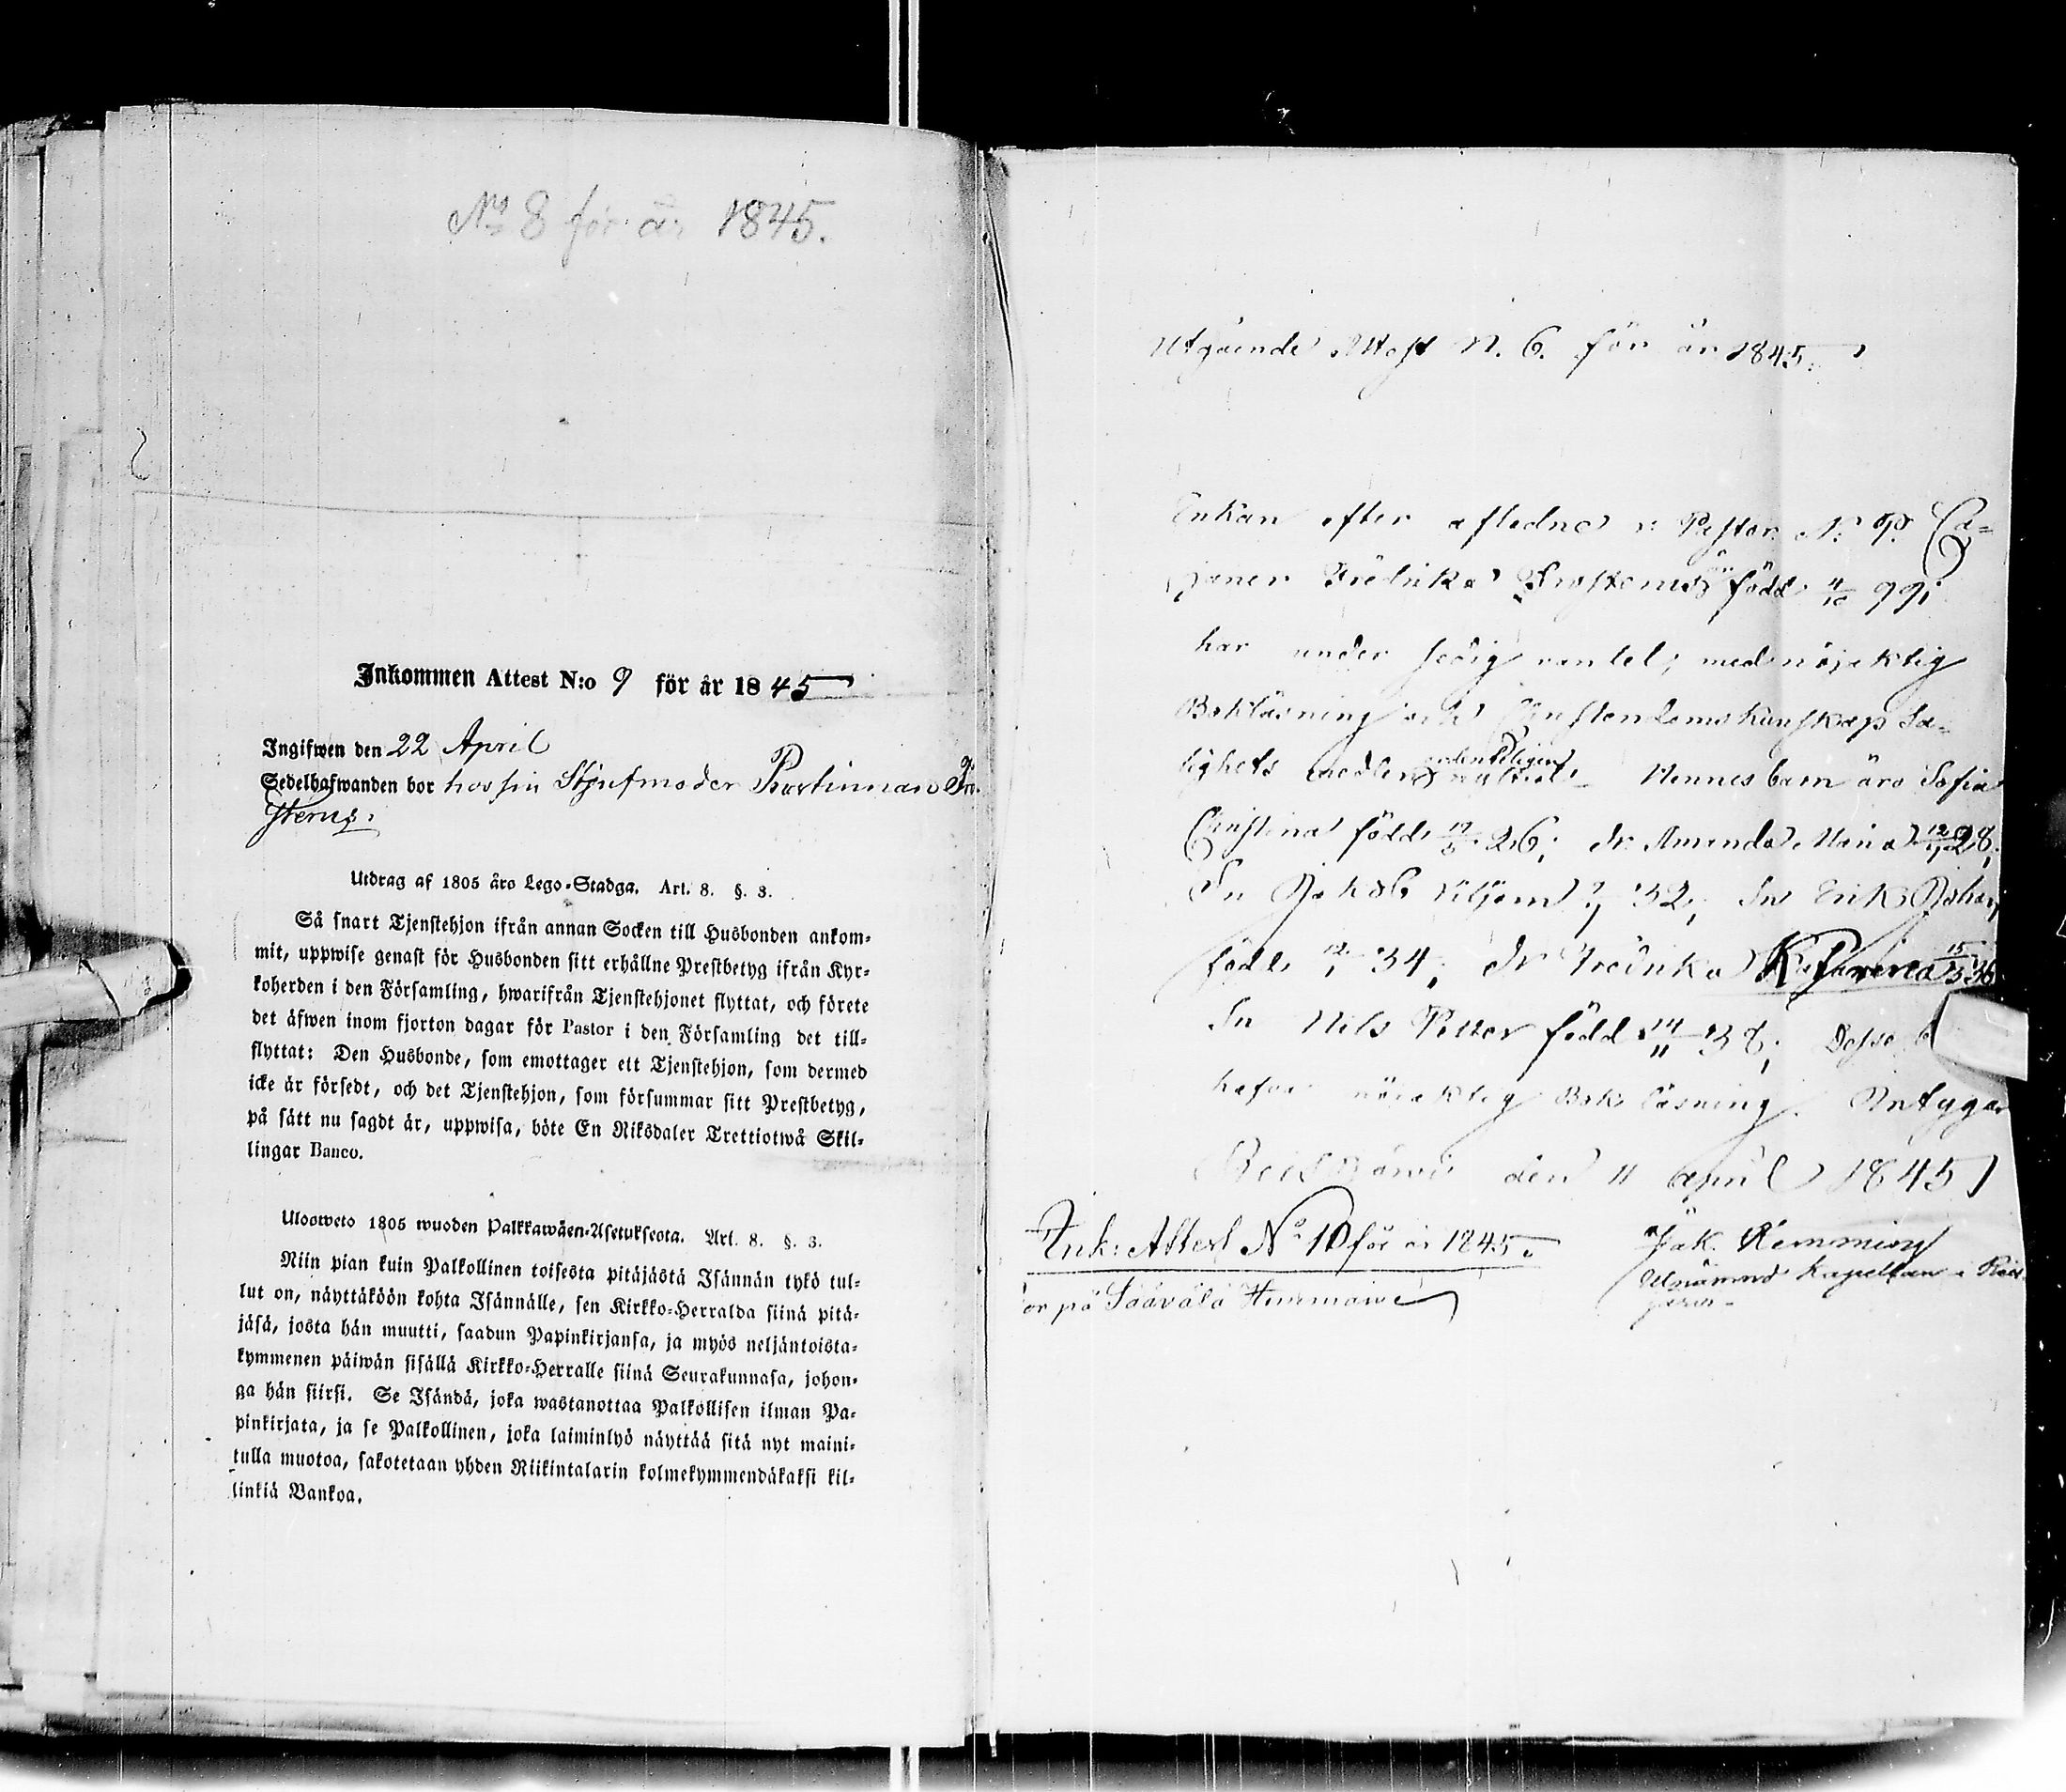 No 8 för år 1845.
Inkommen Attest N:o 9 för år 1845
Ingifwen den 22 April
Sedelhafwanden bor hos sin Stjufmoder Prostinnan Fro-
sterus.
Utdrag af 1805 åro Lego-Stadga. Art. 8. §. 3.
Så snart Tjenstehjon ifrån annan Socken till Husbonden ankom-
mit, uppwise genast för Husbonden sitt erhållne Prestbetyg ifrån Kyr-
koherden i den Församling, hwarifrån Tjenstehjonet flyttat, och förete
det äfwen inom fjorton dagar för Pastor i den Församling det till-
flyttat: Den Husbonde, som emottager ett Tjenstehjon, som dermed
icke är försedt, och det Tjenstehjon, som försummar sitt Prestbetyg,
på sätt nu sagdt är, uppwisa, böte En Riksdaler Trettiotwå Skil-
lingar Banco.
Ulosweto 1805 wuoden Palkkawäen-Asetuksesta. Art. 8. §. 3.
Niin pian kuin Palkollinen toisesta pitäjästä Isännän tykö tul-
lut on, näyttäköön kohta Isännälle, sen Kirkko-Herralda siinä pitä-
jäsä, josta hän muutti, saadun Papinkirjansa, ja myös neljäntoista-
kymmenen päiwän sisällä Kirkko-Herralle siinä Seurakunnasa, johon-
ga hän siirsi. Se Isändä, joka wastanottaa Palkollisen ilman Pa-
pinkirjata, ja se Palkollinen, joka laiminlyö näyttää sitä nyt maini-
tulla muotoa, sakotetaan yhden Riikintalarin kolmekymmendäkaksi kil-
linkiä Bankoa.
Utgående Attest N. 6. för år 1845.
Enkan efter afledne v: Pastor N: P. Ca-
janer Fredrika Frosterus är född 4/10 99;
har under sedig vandel, med nöjaktig
Bokläsning och Christendoms Kunskap Sa-
lighets medlen ordentligen nyttjat. Hennes barn äro Sofia
Christina född 26; dr Amanda Maria 28;
Sn Jakob Viljam 32; Sn Erik Johan
född 12/1 34; dr Fredrika Katarina 15/3 36
Sn Nils Petter född 14/11 38; Desse
hafva nöjaktig Bok läsning. Intygar
Reisjärvi den 11 april 1845
Jak. Remming
Utnämnd Kapellan i Reis-
järvi
Ink: Attest No 10 för år 1845.
or på Säävälä Hemman